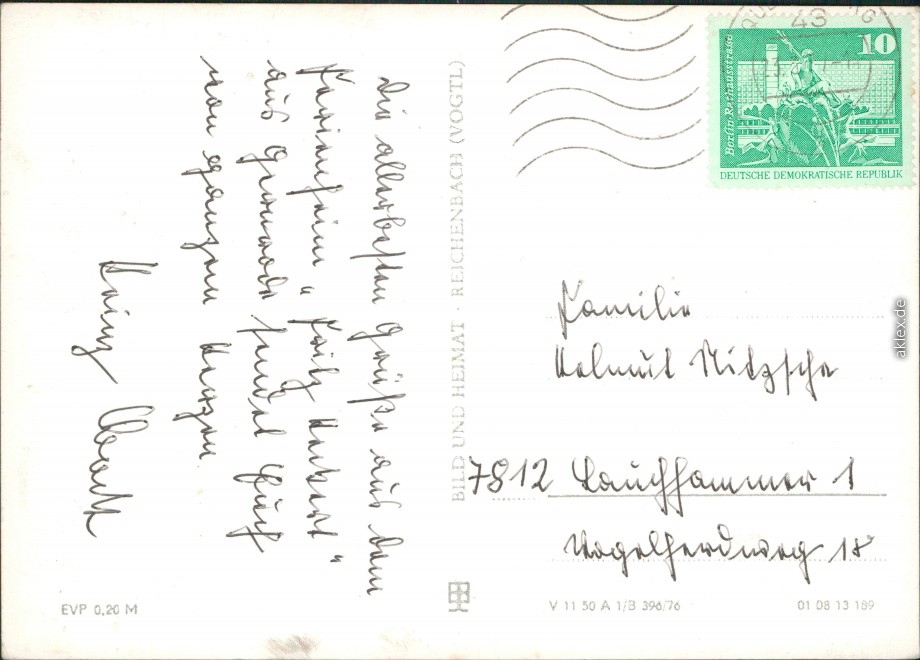 Die allerbesten Grüße aus dem
Ferienheim "Fritz Heckert"
aus Gernrode sendet Euch
von ganzen Herzen
Heinz
BILD UND HEIMAT · REICHENBACH (VOGTL)
43
10
Berlin-Rathausstraße
DEUTSCHE DEMOKRATISCHE REPUBLIK
Familie
Helmut Nitzsche
7812 Lauchhammer 1
Vogelherdweg 18
EVP 0,20 M
V 11 50 A 1/B 396/76
01 08 13 189
aklex.de